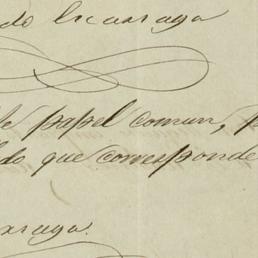 do Licarraga
de papel comun, p
do que corresponde
rraga.